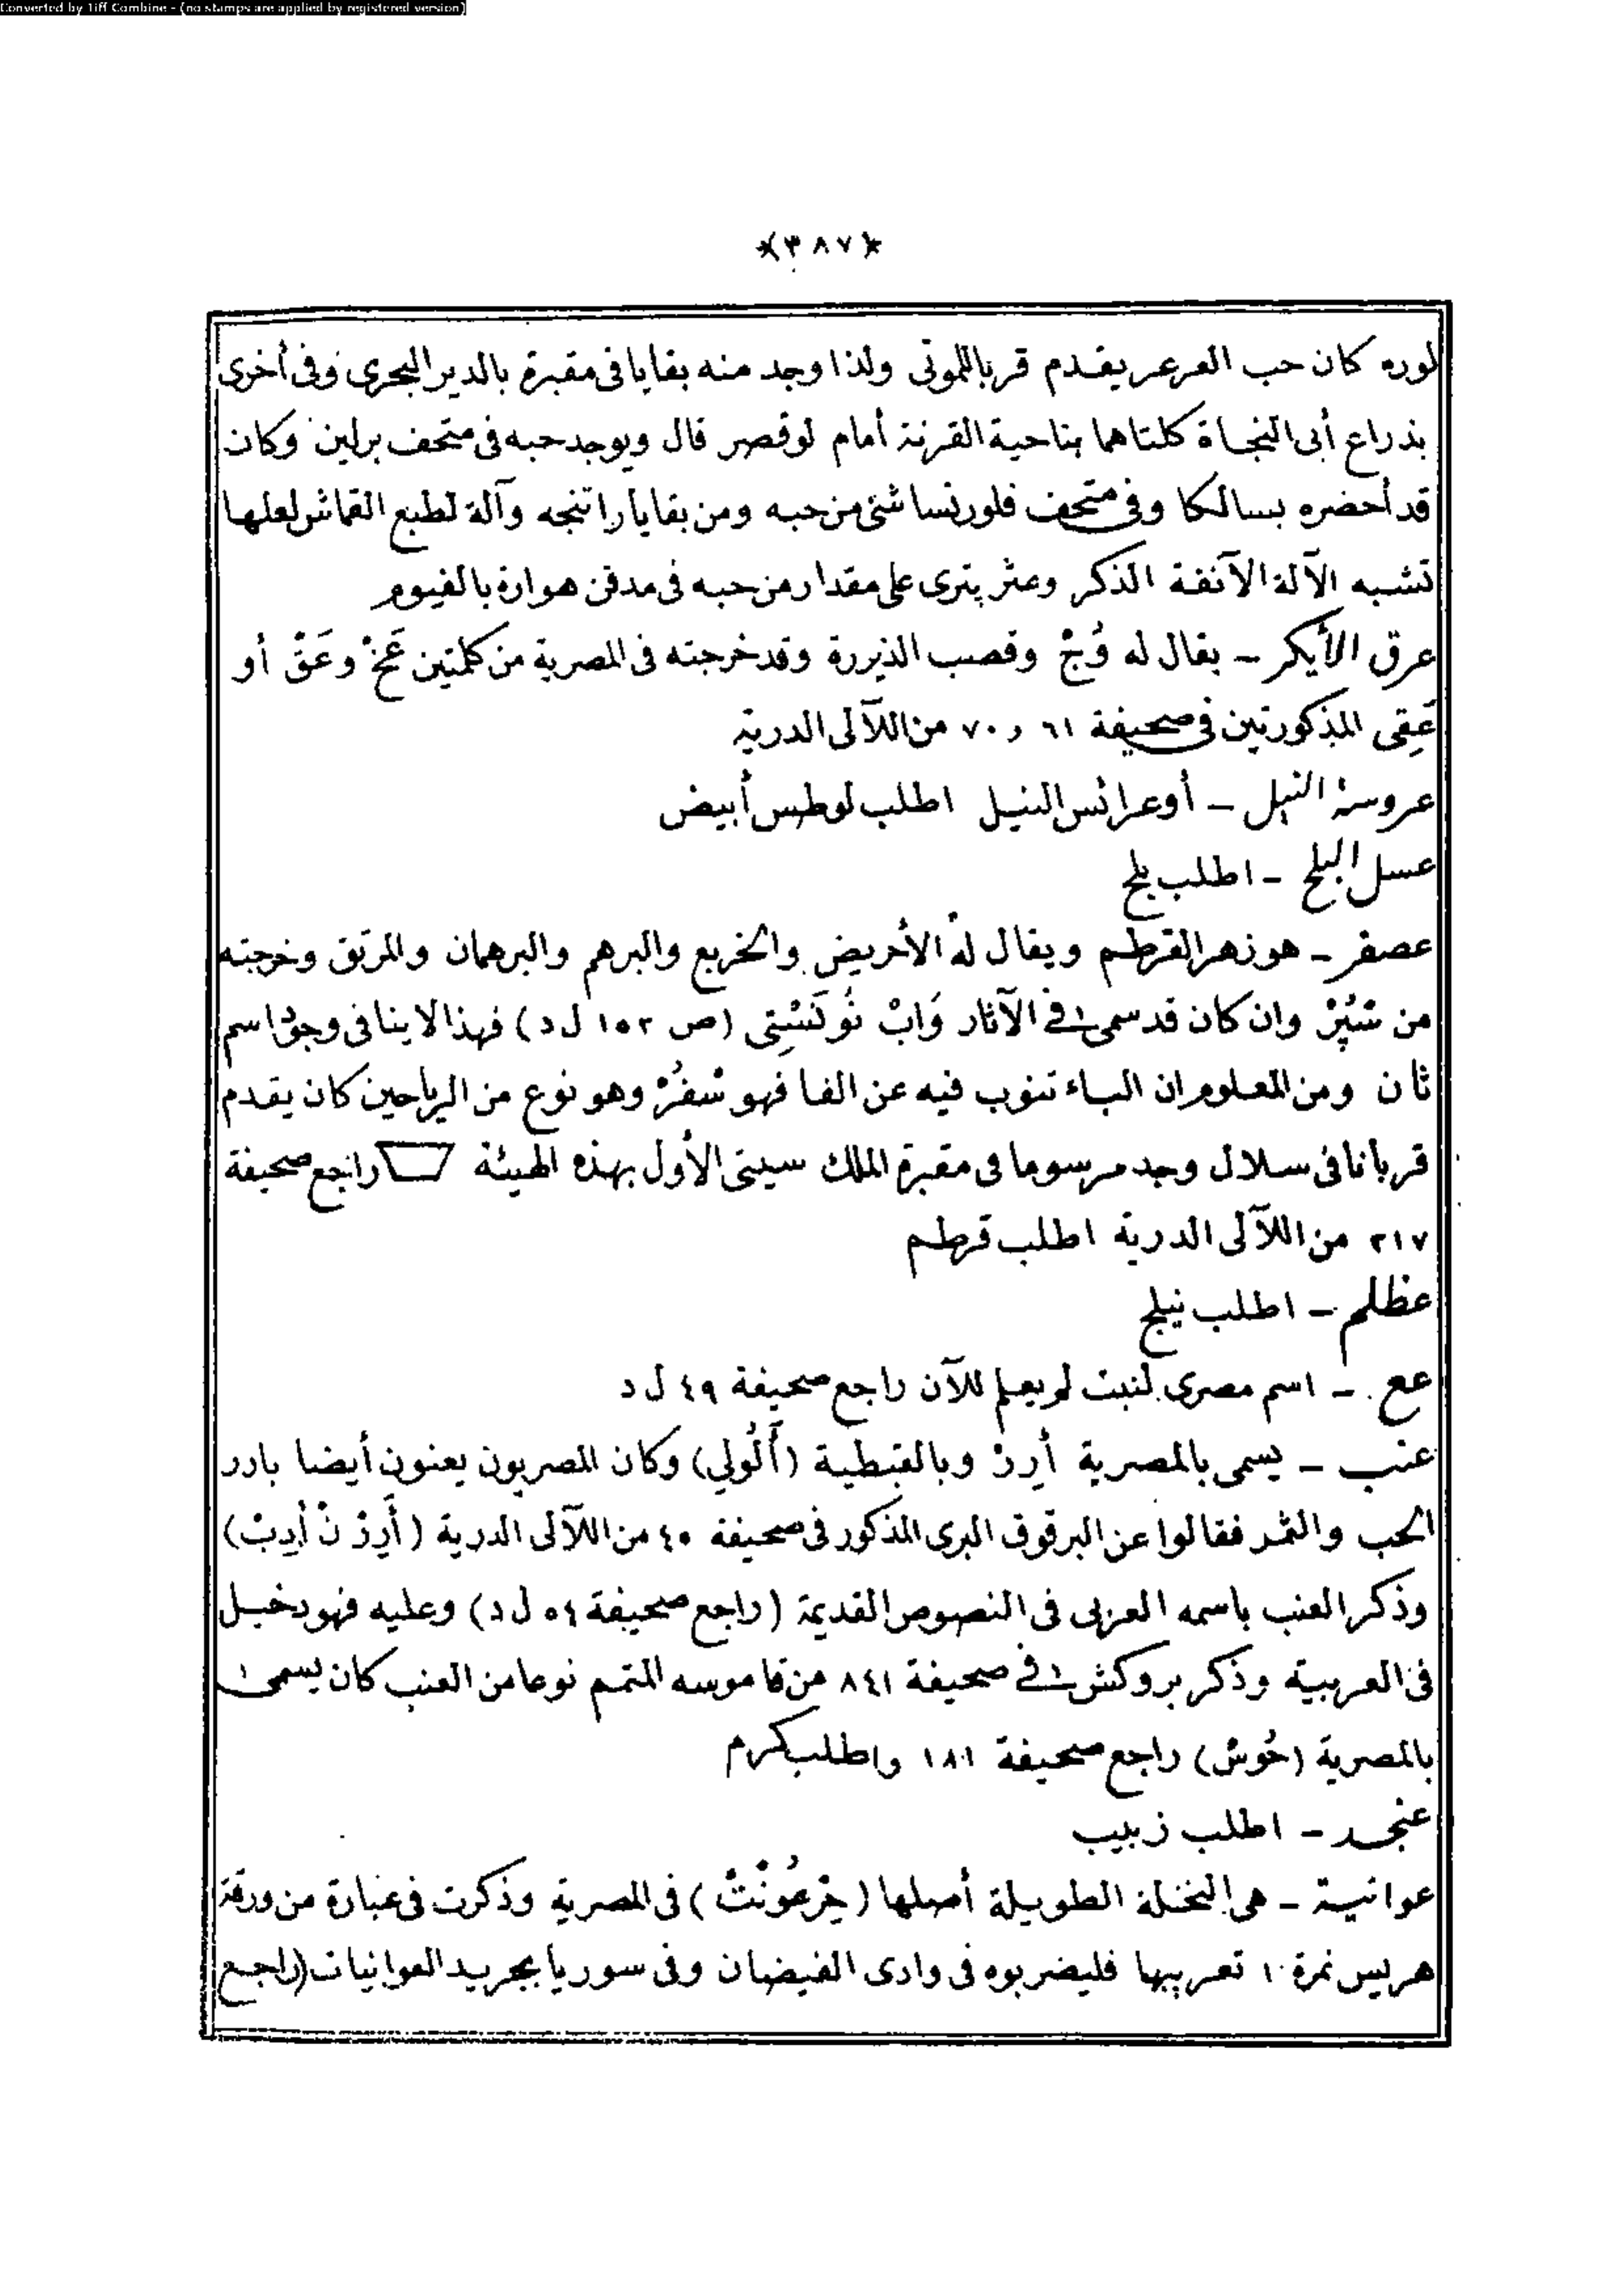 Converted by Tiff Combine - (no stamps are applied by registered version)
*(٣٨٧)*
لوره كان حب العرعر يقدم قربا للموتى ولذا وجد منه بقايا فى مقبرة بالدير البحرى وفى أخرى
بذراع أبى النجاة كلتاهما بناحية القرنة أمام لوقصر قال ويوجد حبه فى متحف برلين وكان
قد أحضره بسالكا وفى متحف فلورنسا شئ من حبه ومن بقايا راتنجه وآلة لطبع القماش لعلها
تشبه الآلة الآنفة الذكر وعثر پترى على مقدار من حبه فى مدفن هوارة بالفيوم
عرق الأيكر – يقال له وُجْ وقصب الذريرة وقد خرجته فى المصرية من كلمتين عَخْ وعَقْ أو
عَقِى المذكورتين فى صحيفة ٦١ و ٧٠ من اللآلى الدرية
عروسة النيل – أو عرائس النيل اطلب لوطس أبيض
عسل البلح – اطلب بلح
عصفر – هو زهر القرطم ويقال له الأحريض والخريع والبرهم والبرهمان والمريق وخرجته
من سْپُرْ وان كان قد سمى فى الآثار وَابْ نُوكَسْتِى (ص ١٥٢ ل د) فهذا لا ينافى وجود اسم
ثان ومن المعلوم ان الباء تنوب فيه عن الفا فهو سْفُرْ وهو نوع من الرياحين كان يقدم
قربانا فى سلال وجد مرسوما فى مقبرة الملك سيتى الأول بهذه الهيئة راجع صحيفة
٢١٧ من اللآلى الدرية اطلب قرطم
عظلم – اطلب نيلج
عع – اسم مصرى لنبت لم يعلم للآن راجع صحيفة ٤٩ ل د
عنب – يسمى بالمصرية أَرِرْ وبالقبطية (أَلُولِى) وكان المصريون يعنون أيضا بارر
الحب والثمر فقالوا عن البرقوق البرى المذكور فى صحيفة ٤٠ من اللآلى الدرية (أَرِرْ نْ أَدِبْ)
وذكر العنب باسمه العربى فى النصوص القديمة (راجع صحيفة ٥٤ ل د) وعليه فهو دخيل
فى العربية وذكر بروكش فى صحيفة ٨٤١ من قاموسه المتمم نوعا من العنب كان يسمى
بالمصرية (خُوش) راجع صحيفة ١٨١ واطلب كرم
عنجد – اطلب زبيب
عوانية – هى النخلة الطويلة أصلها فى المصرية وذكرت فى عبارة من ورقة
هريس نمرة ١٠ تعريبها فليضربوه فى وادى الفيضان وفى سوريا بجريد العوانيات (راجع